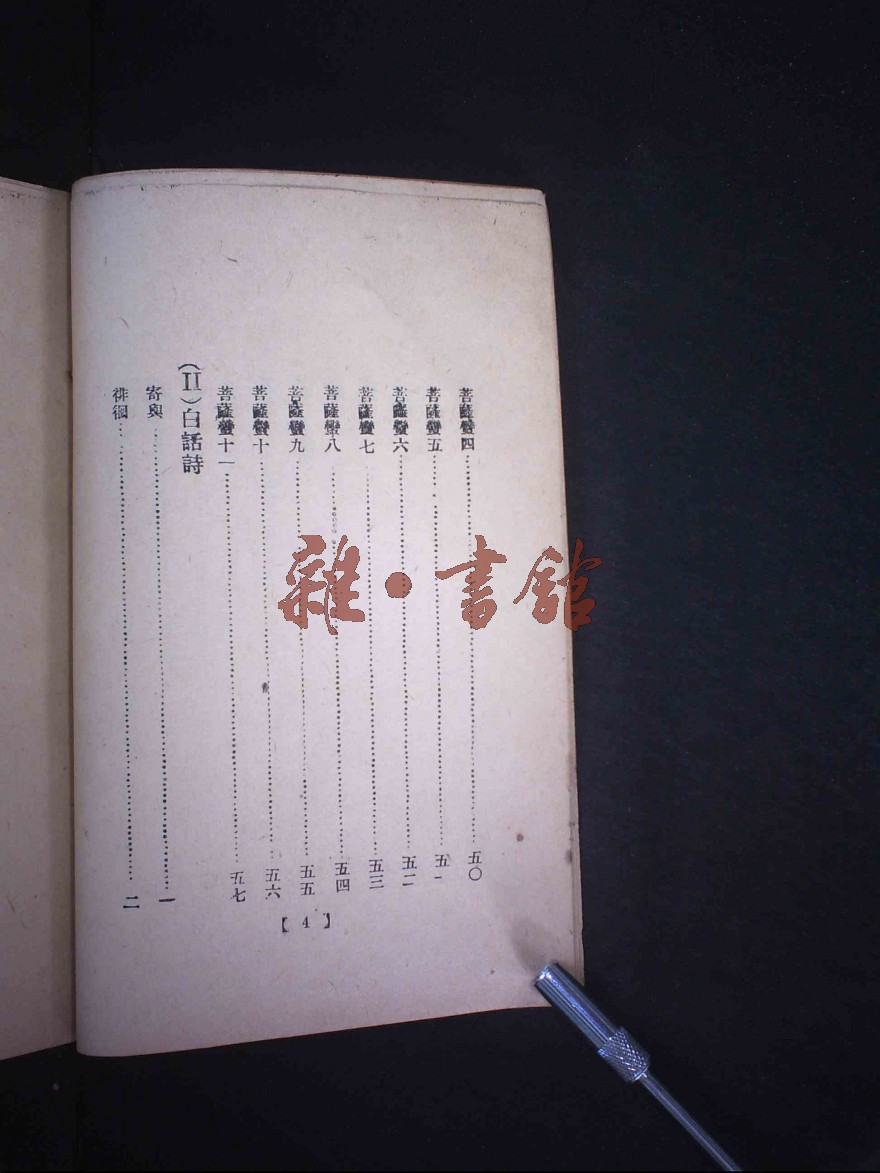 菩薩蠻四……五〇
菩薩蠻五……五一
菩薩蠻六……五二
菩薩蠻七……五三
菩薩蠻八……五四
菩薩蠻九……五五
菩薩蠻十……五六
菩薩蠻十一……五七
(II)白話詩
寄與……一
徘徊……二
【4】
雜·書舘